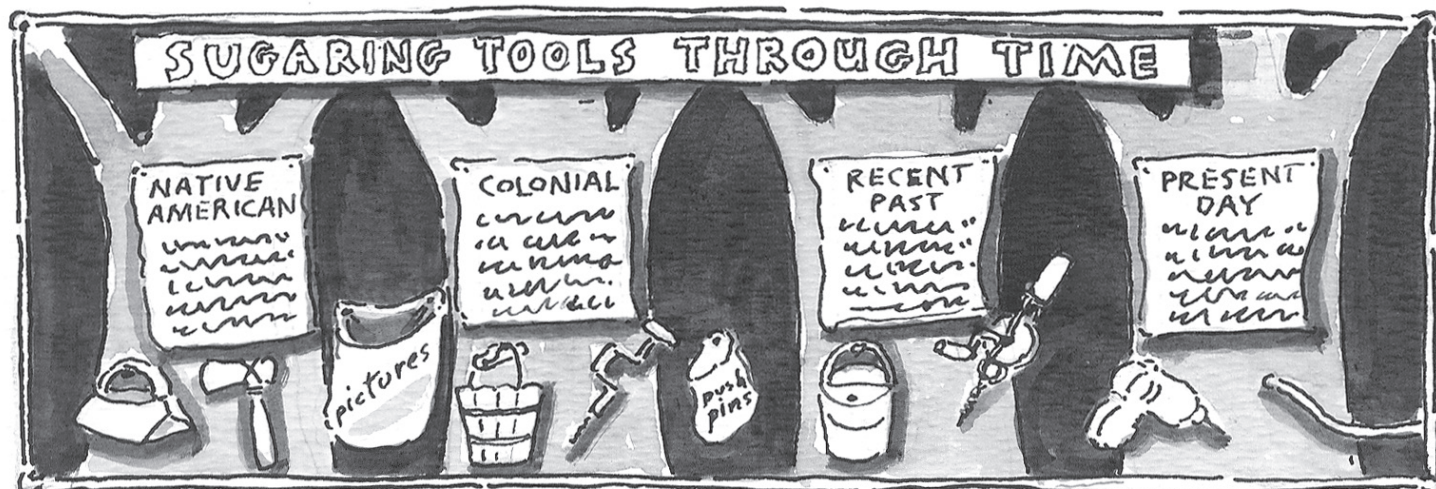 SUGARING TOOLS THROUGH TIME
NATIVE
AMERICAN
COLONIAL
RECENT
PAST
PRESENT
DAY
pictures
push
pins